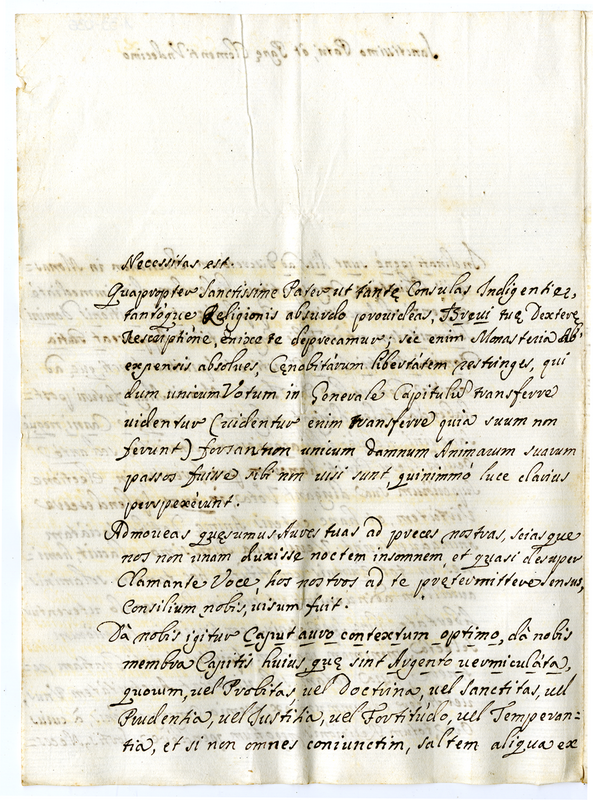 Necessitas est.
Quapropter Sanctissime Pater ut tantę Consulas Indigentię,
tantoque Religionis absurdo prouideas, Breui tuę Dexterę
Rescriptione, enixe te deprecamur; sic enim Monasteria ab
expensis absolues, Cęnobitarum libertatem restringes, qui
dum unicum Votum in Generale Capitulum transferre
uidentur (uidentur enim transferre quia suum non
ferunt) forsan unicum damnum Animarum suarum
passos fuisse sibi non uisi sunt, quinimmò luce clarius
perspexerunt.
Admoueas quęsumus Aures tuas ad preces nostras, sciasque
nos non unam duxisse noctem insomnem, et quasi desuper
Clamante Voce, hos nostros ad te prętermittere sensus,
Consilium nobis, uisum fuit.
Dà nobis igitur Caput auro contextum optimo, dà nobis
membra Capitis huius quę sint Argento uermiculata,
quorum, uel Probitas, uel Doctrina, uel Sanctitas, uel
Prudentia, uel Justitia, uel Fortitudo, uel Temperan=
tia, et si non omnes coniunctim, saltem aliqua ex